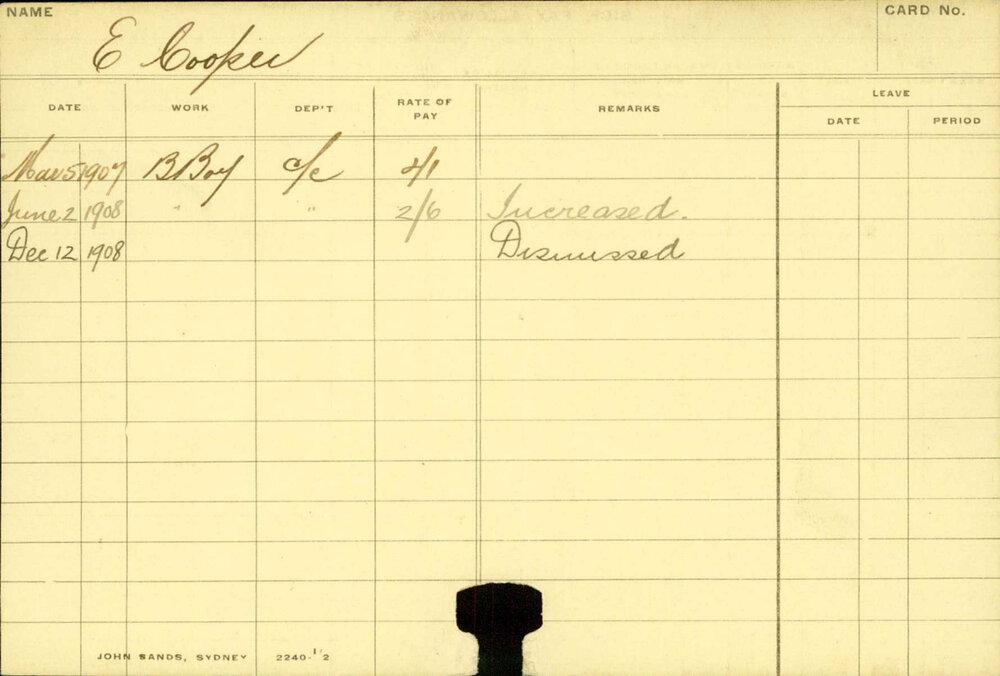 NAME
CARD No.
E Cooper
DATE WORK DEP'T RATE OF PAY REMARKS LEAVE
DATE PERIOD
Mar 5 1907 B Boy c/c 2/1
June 2 1908 " " 2/6 Increased.
Dec 12 1908 Dismissed
JOHN SANDS, SYDNEY 2240-